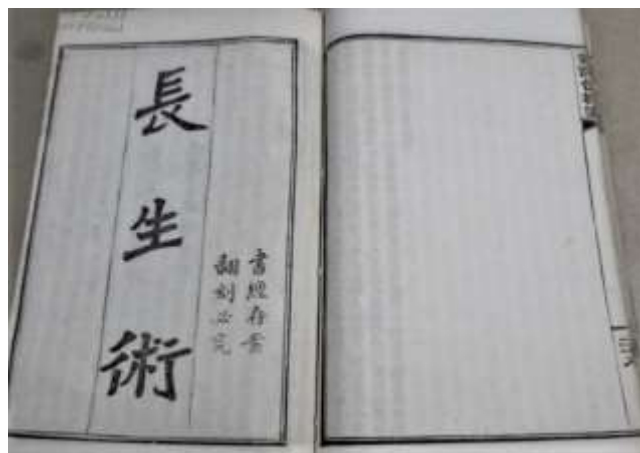 長生術
書經存案
翻刻必究